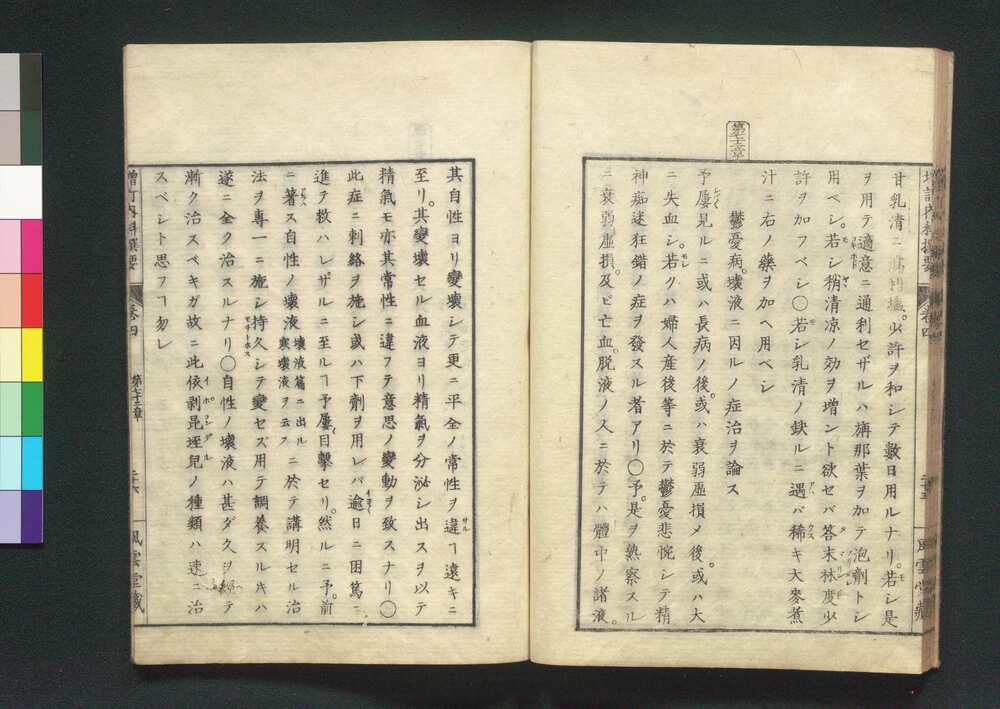 増訂内科撰要 卷四
風雲堂藏
甘乳清ニ 少許ヲ和シテ數日用ルナリ。若シ是
ヲ用テ適意ニ通利セザルハ旃那葉ヲ加テ泡劑トシ
用ベシ。若シ稍清凉ノ効ヲ増ント欲セバ答末林度少
許ヲ加フベシ〇若シ乳清ノ鈌ルニ遇バ稀キ大麥煮
汁ニ右ノ藥ヲ加ヘ用ベシ
第七十三章
鬱憂病。壊液ニ因ルノ症治ヲ論ス
予屢見ルニ或ハ長病ノ後。或ハ衰弱虛損メ後。或ハ大
ニ失血シ。若クハ婦人産後等ニ於テ鬱憂悲惋シテ精
神痴迷狂錯ノ症ヲ發スル者アリ〇予。是ヲ熟察スル
ニ衰弱虛損。及ビ亡血。脱液ノ人ニ於テハ體中ノ諸液。
其自性ヨリ變壊シテ更ニ平全ノ常性ヲ違ヿ遠キニ
至リ。其變壊セル血液ヨリ精氣ヲ分泌シ出スヲ以テ
精氣モ亦其常性ニ違フテ意思ノ變動ヲ致スナリ〇
此症ニ刺絡ヲ施シ或ハ下劑ヲ用レバ逾日ニ困篤ニ
進ヲ救ハレザルニ至ルヿ予屢目擊セリ。然ルニ予。前
ニ著ス自性ノ壊液 壊液篇ニ出ル寒壊液ヲ云フ ニ於テ講明セル治
法ヲ專一ニ施シ持久シテ變セズ用テ調養スルキハ
遂ニ全ク治スルナリ〇自性ノ壊液ハ甚ダ久ヲ經テ
漸ク治スベキガ故ニ此依剥昆垤児ノ種類ハ速ニ治
スベシト思フヿ勿レ
増訂内科撰要 卷四 第七十三章 二十六 風雲堂藏